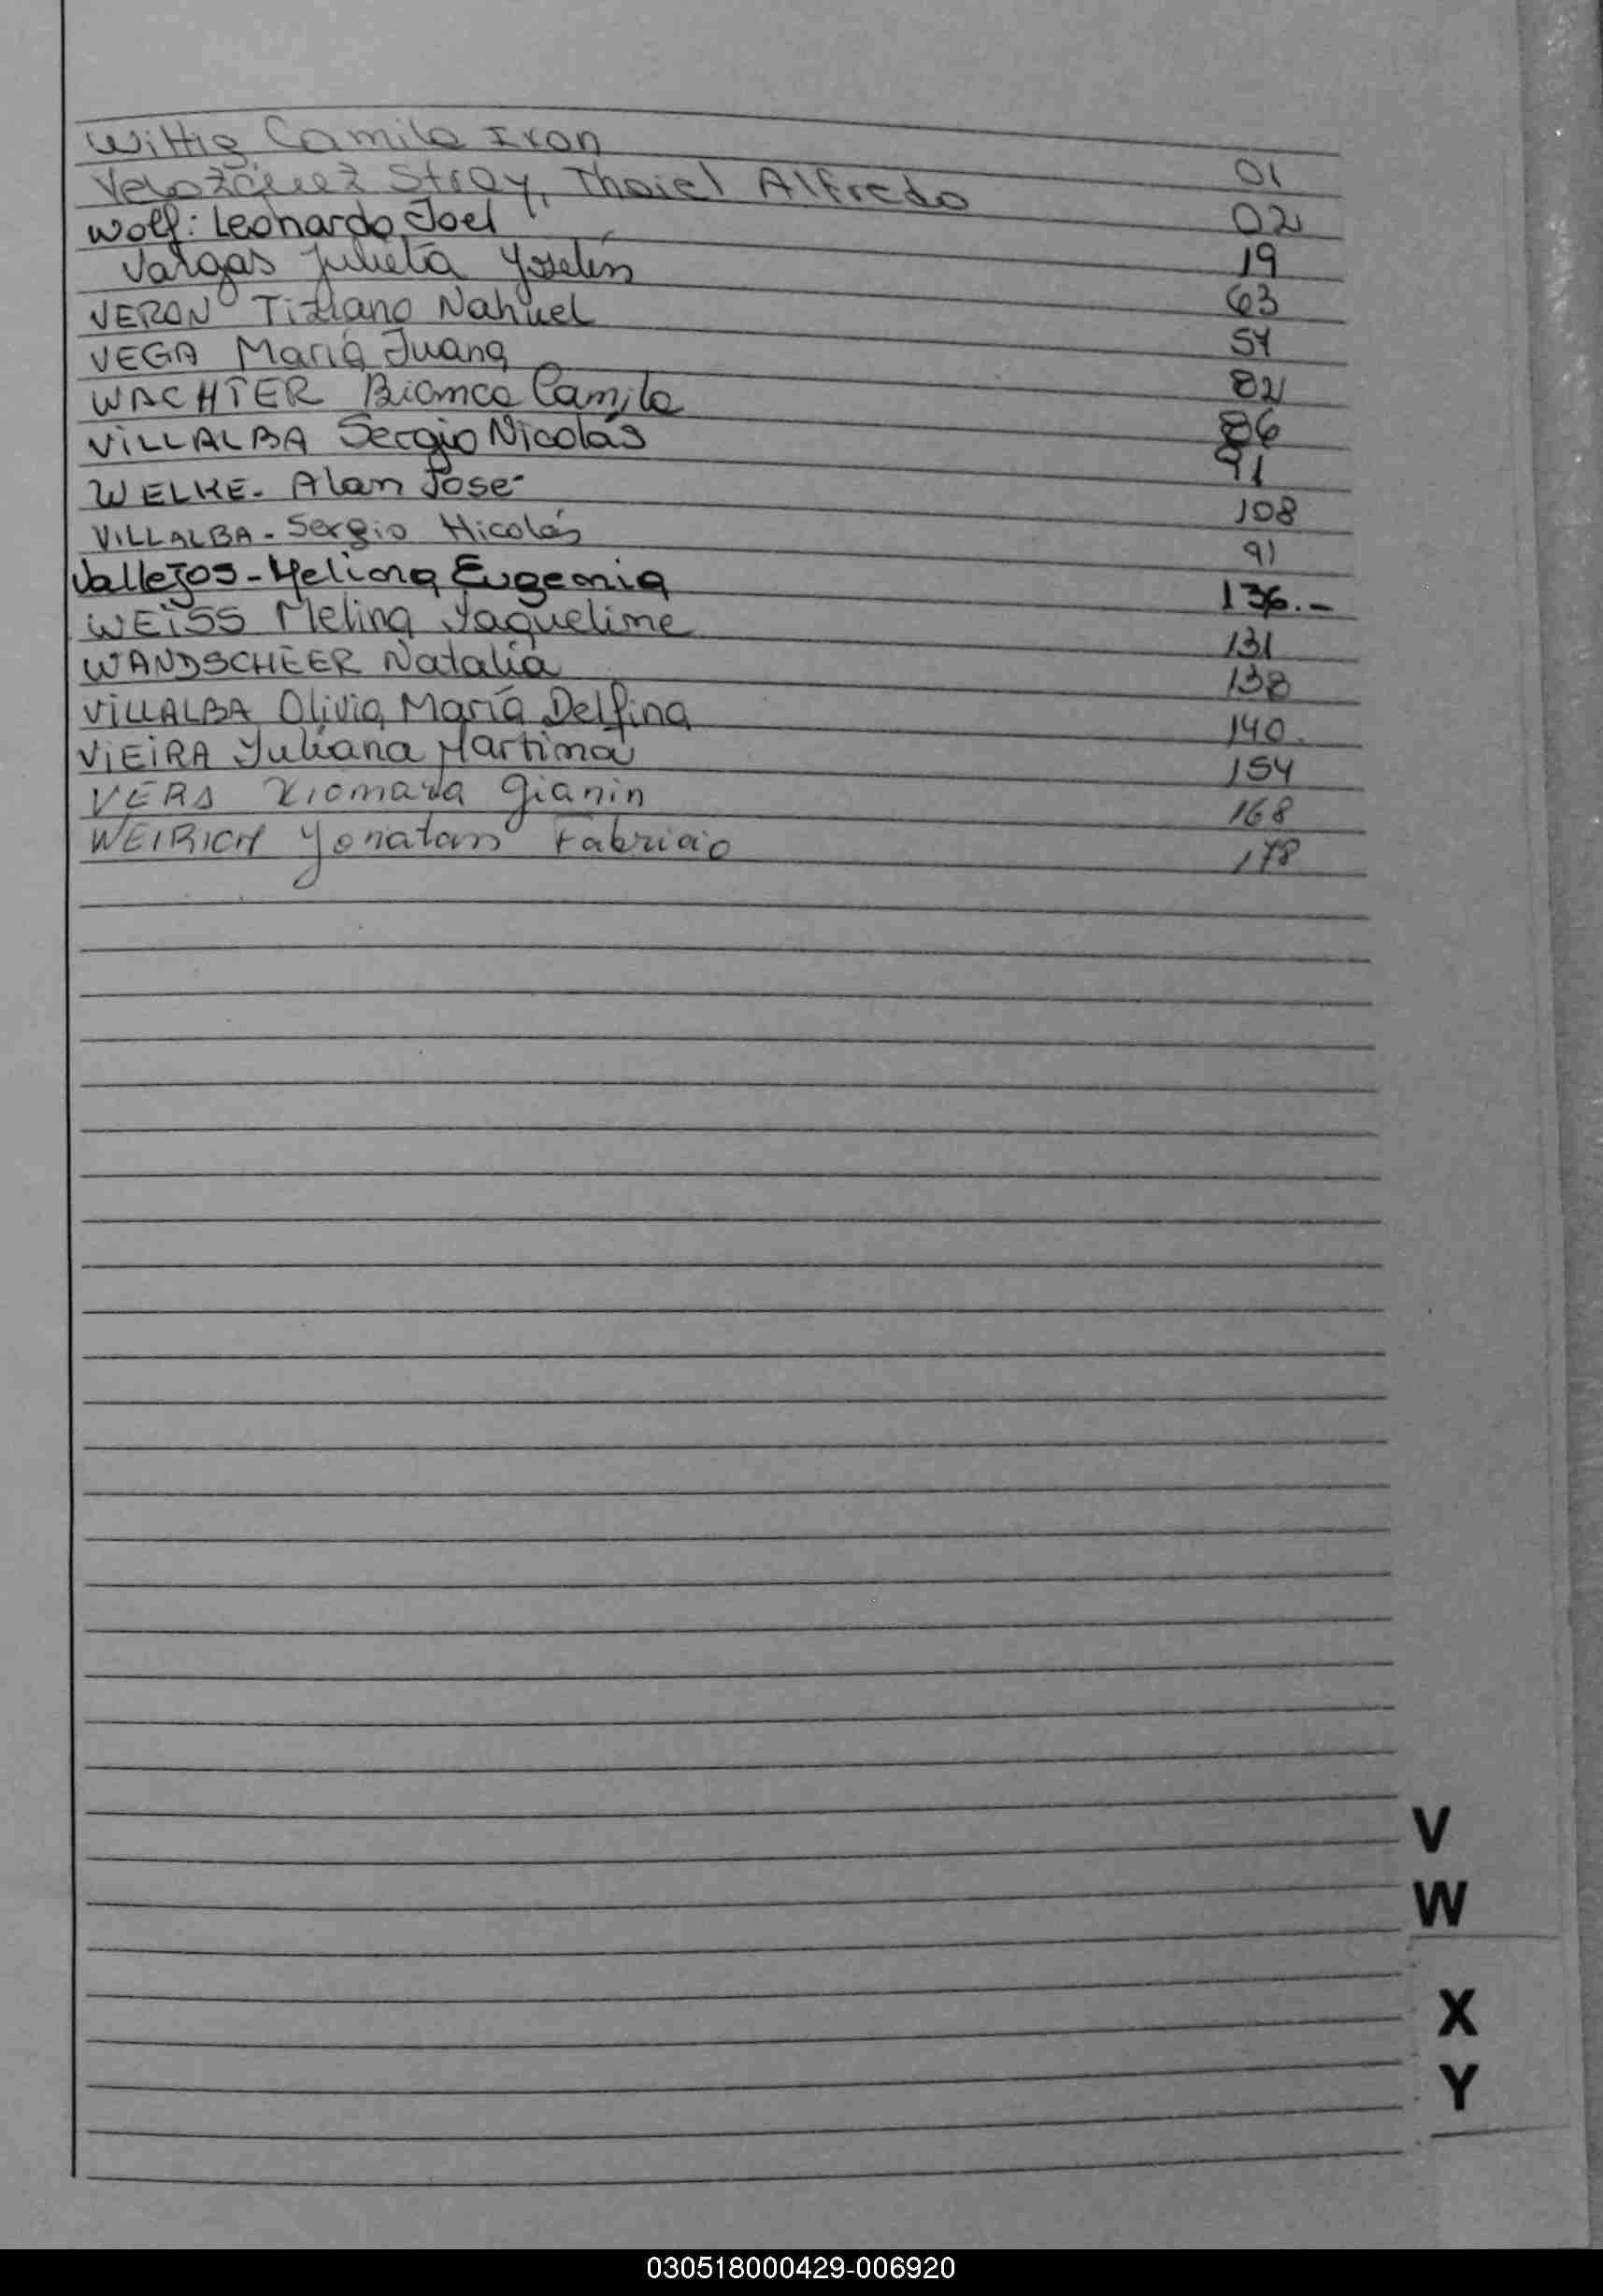 Wittig Camila Iron 01
Velozquez Stray, Thaiel Alfredo 02
Wolf: Leonardo Joel 19
Vargas Julieta Yoselin 63
VERON Tiziano Nahuel 54
VEGA María Juana 82
WACHTER Bianca Camila 86
VILLALBA Sergio Nicolás 91
WELKE. Alan José 108
VILLALBA - Sergio Nicolás 91
Vallejos - Meliana Eugenia 136.-
WEISS Melina Jaqueline 131
WANDSCHEER Natalia 138
VILLALBA Olivia María Delfina 140.
VIEIRA Juliana Martina 154
VERA Xiomara Gianin 168
WEIRICH Yonatan Fabricio 178
V
W
X
Y
030518000429-006920